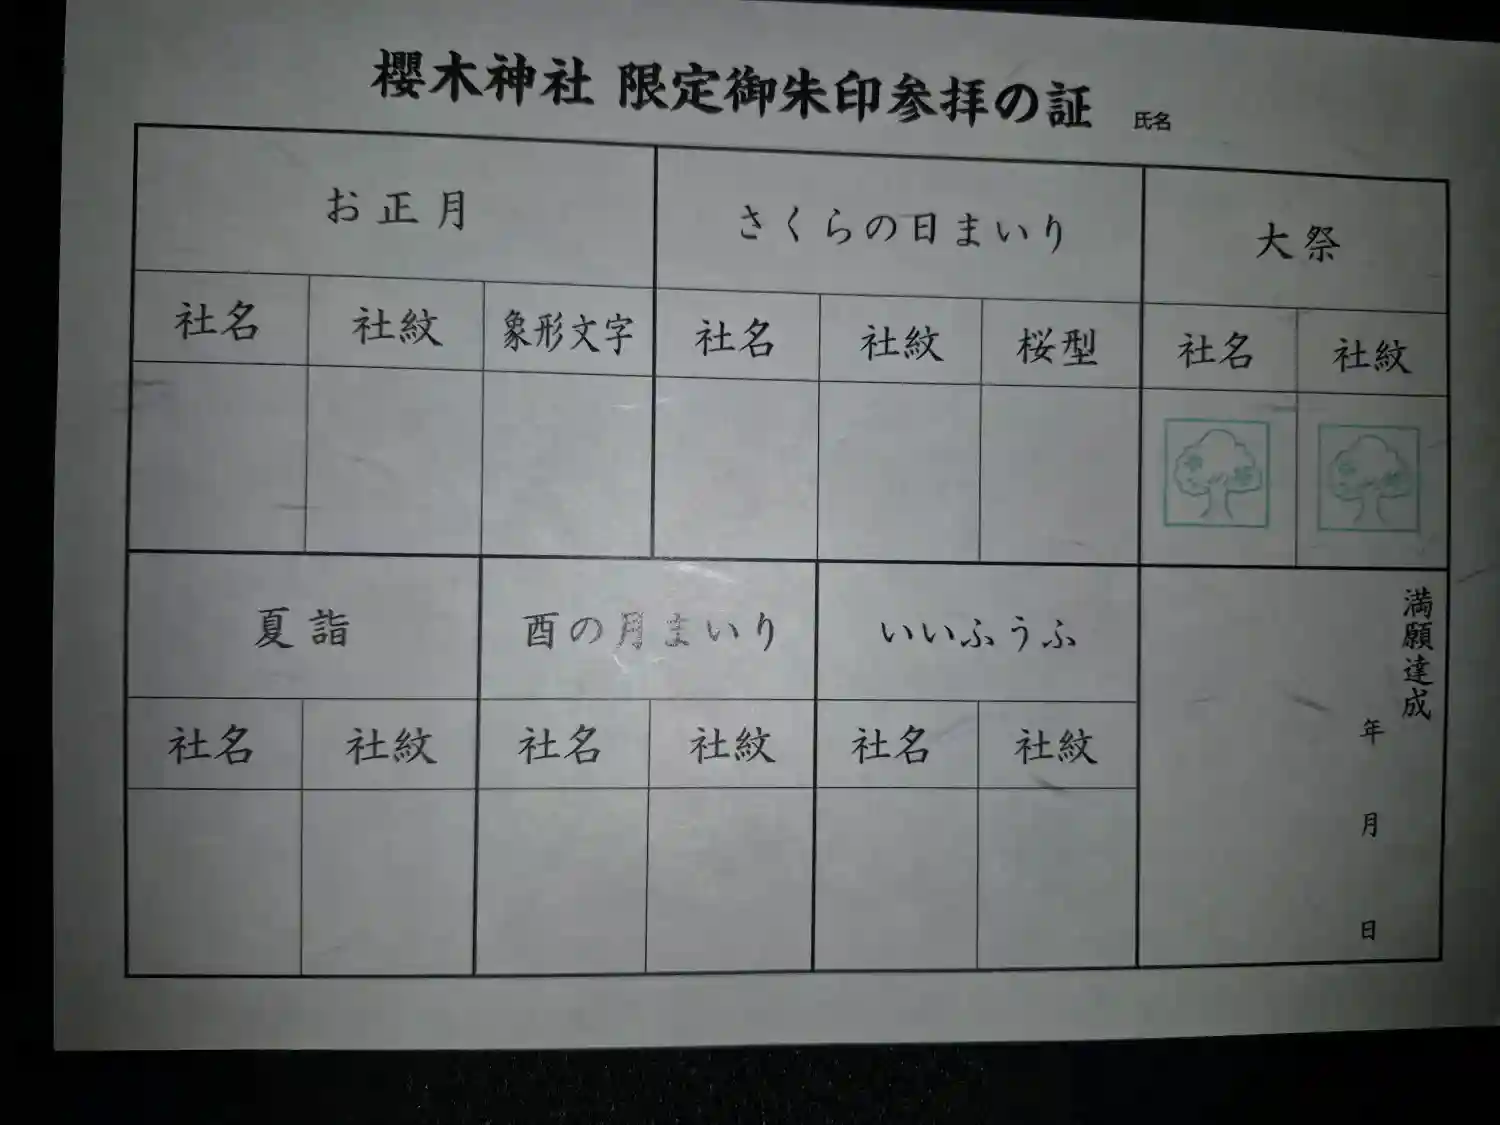 櫻木神社 限定御朱印参拝の証 氏名
お正月 さくらの日まいり 大祭
社名 社紋 象形文字 社名 社紋 桜型 社名 社紋
夏詣 酉の月まいり いいふうふ
社名 社紋 社名 社紋 社名 社紋
満願達成
年 月 日